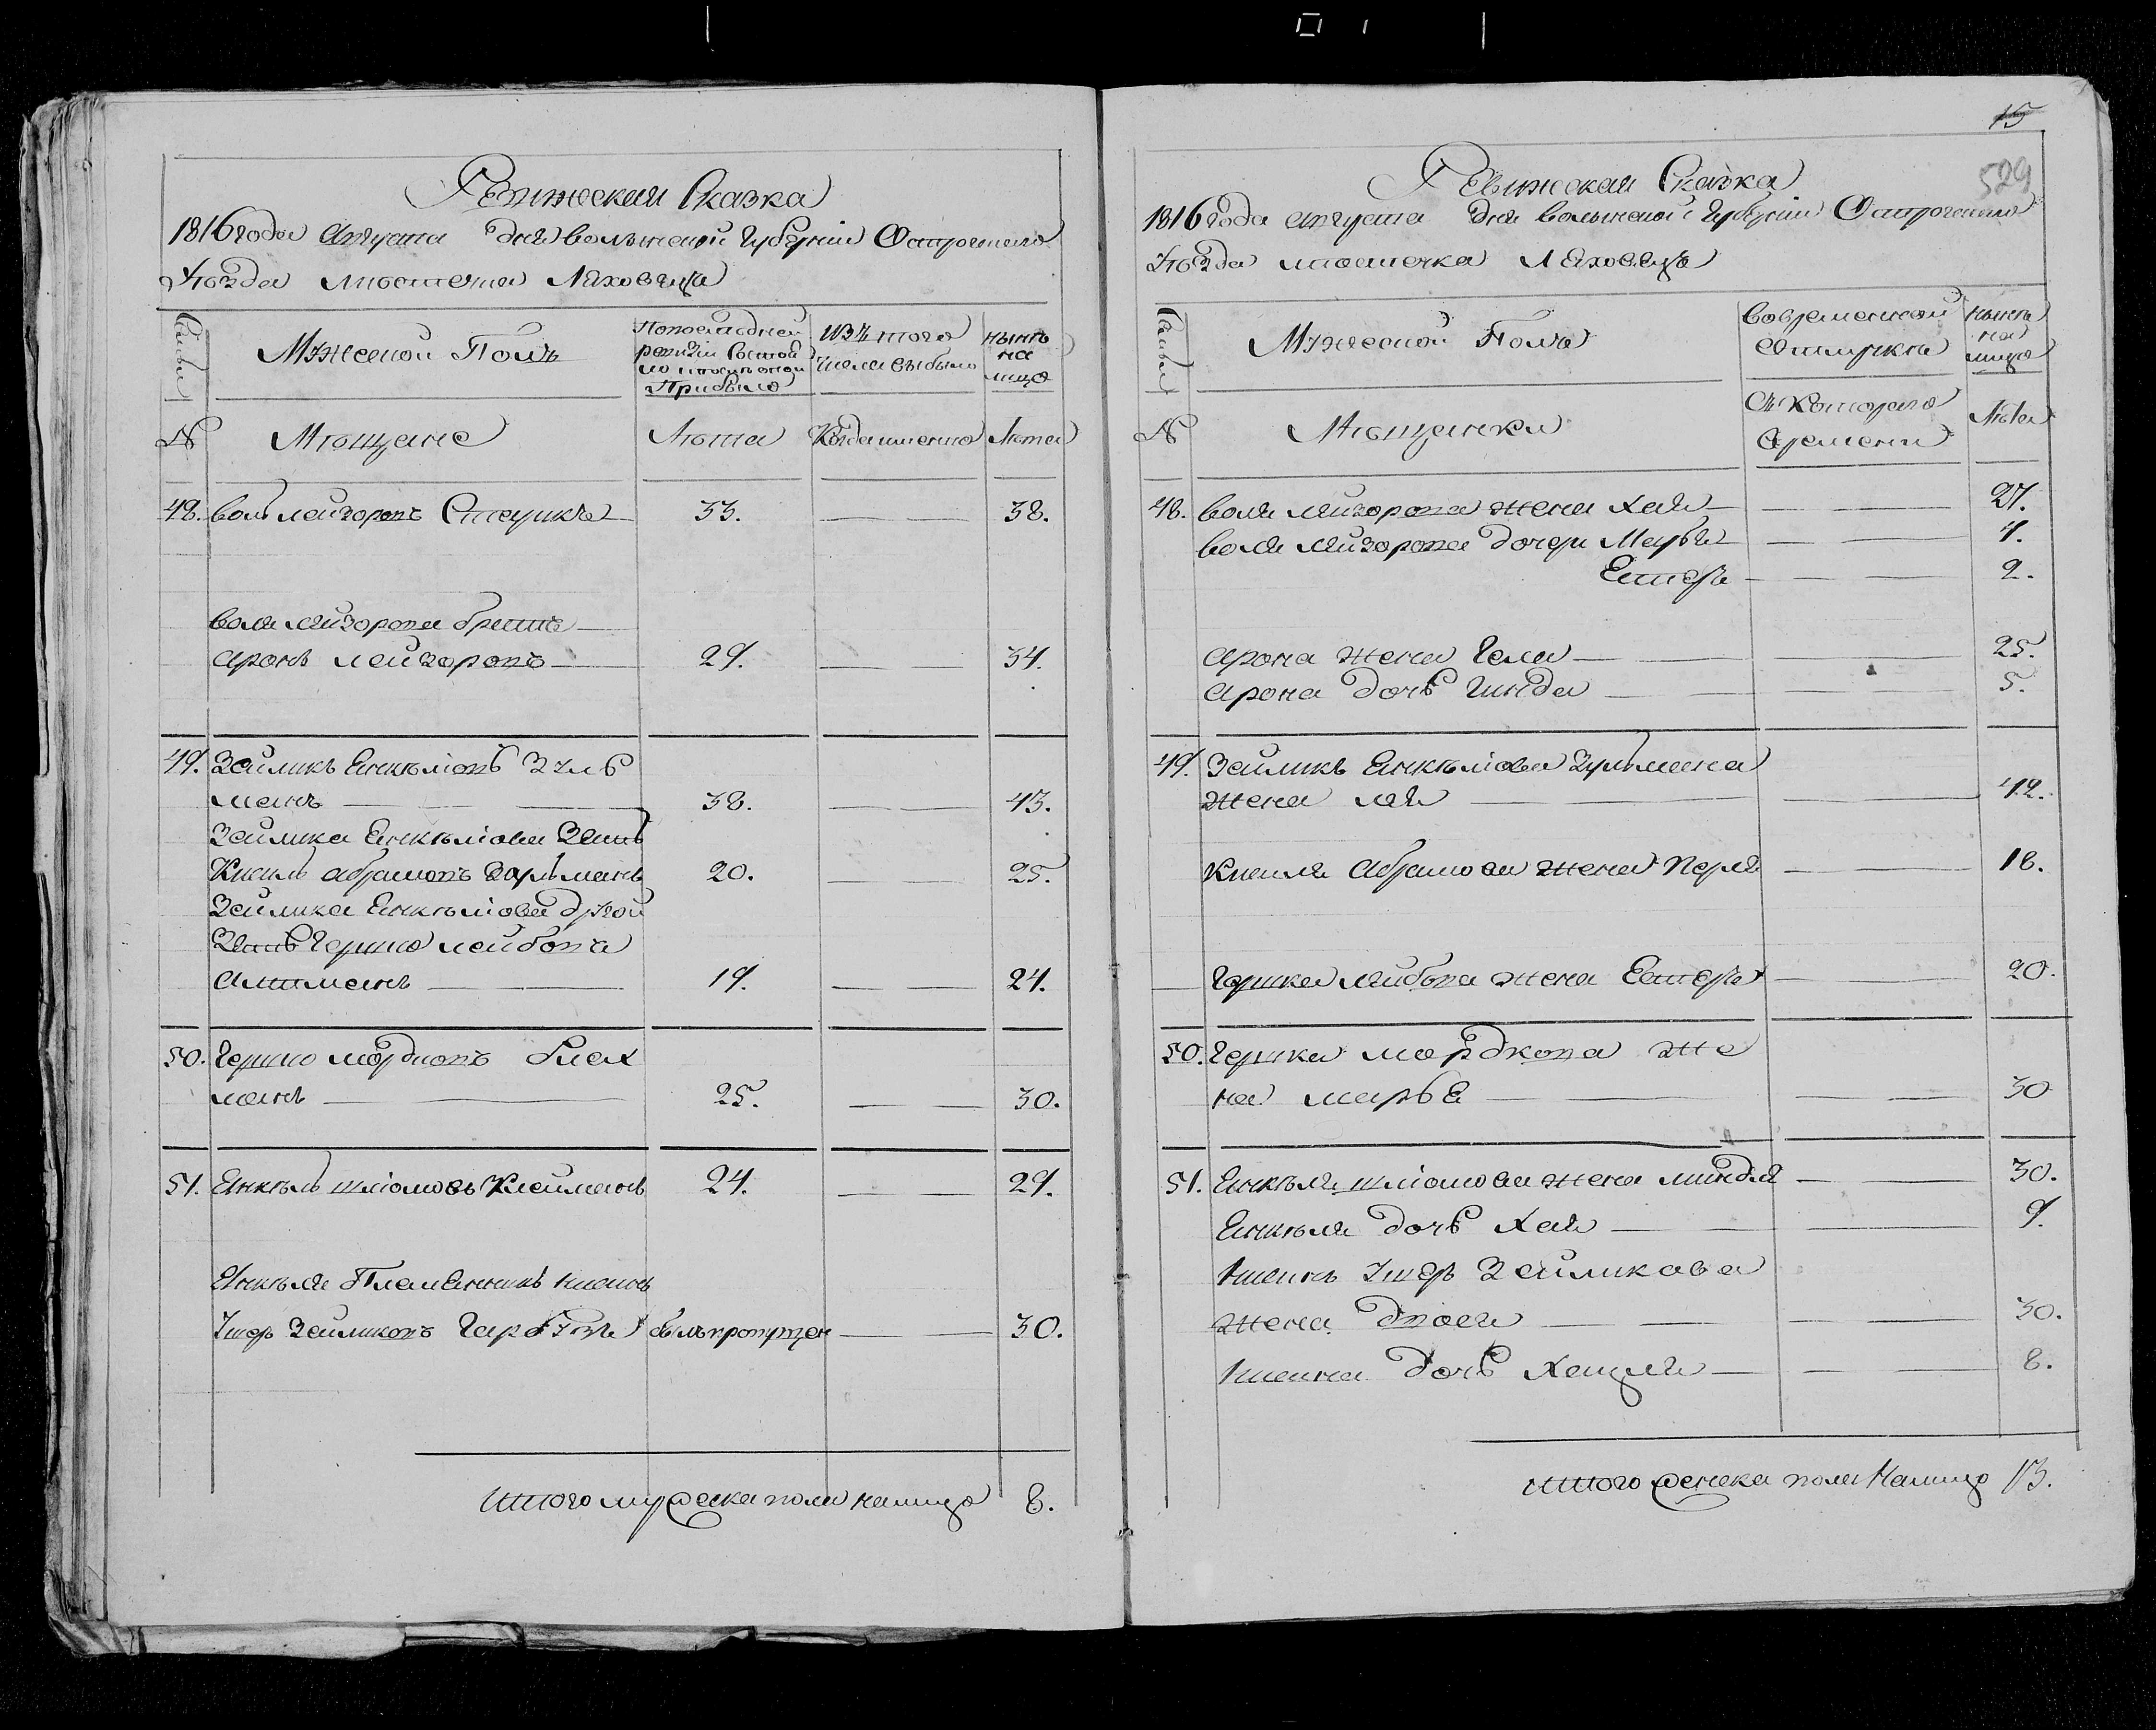 Ревижская Сказка
1816 года августа дня волынской губернии Острогского
уѣзда мѣстечка Ляховецъ
Семьи
Мужеской Полъ
По последней ревизiи состояло и после оной прибыло
Изъ того числа выбыло
нынѣ на лицо
№
Мѣщане
Лѣта
Когда именно
Лѣта
48. воль лейзоровъ 33. 38.
воля лейзорова братъ
аронъ лейзоровъ 29. 34.
49. Зейликъ Енкѣлiовъ Зуль
манъ 38. 43.
Зейлика Енкѣлiова Зять
Кисиль абрамовъ 20. 25.
Зейлика Енкѣлiова другой
Зять Гершко лейбовъ
Алтманъ 19. 24.
50. Гершко мордковъ
манъ 25. 30.
51. Енкѣль шлiомовъ Клейманъ 24. 29.
Енкѣля Племянникъ
Зейликовъ былъ пропущен 30.
Итого мужеска пола налицо 8.
15
529
Ревижская Сказка
1816 года августа дня волынской губернии Острогского
уѣзда мѣстечка Ляховецъ
Семьи
Мужеской Полъ
Во временной отлучкѣ
нынѣ на лицо
№
Мѣщанки
Съ Котораго времени
Лѣта
48. воля лейзорова жена хая 27.
воля лейзорова дочери 4.
Естеръ 2.
арона жена 25.
арона дочь гинда 5.
49. Зейликъ Енкѣлiова Зульмана
жена лея 42.
Кисиля Абрамова жена перля 18.
Гершка лейбова жена Естеръ 20.
50. Гершка мордкова же
на марьѣ 30
51. Енкѣля шлiомова жена миндля 30.
Енкѣля дочь хая 9.
Зейликова
жена двося 30.
дочь 8.
Итого женска пола налицо 13.